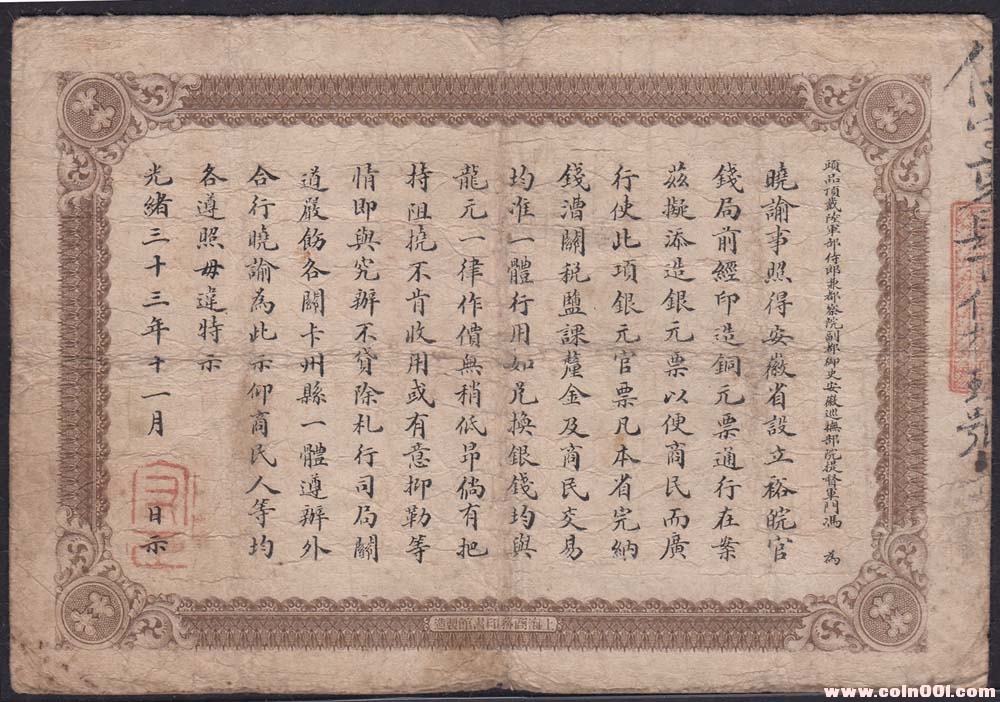 頭品頂戴陸軍部侍郎兼都察院副都御史安徽巡撫部院提督軍門馮 為
曉諭事照得安徽省設立裕皖官
錢局前經印造銅元票通行在案
茲擬添造銀元票以便商民而廣
行使此項銀元官票凡本省完納
錢漕關稅鹽課釐金及商民交易
均准一體行用如兌換銀錢均與
龍元一律作價無稍低昂倘有把
持阻撓不肯收用或有意抑勒等
情即與究辦不貸除札行司局關
道嚴飭各關卡州縣一體遵辦外
合行曉諭為此示仰商民人等均
各遵照毋違特示
光緒三十三年十一月 日示
上海商務印書館製造
www.coin001.com